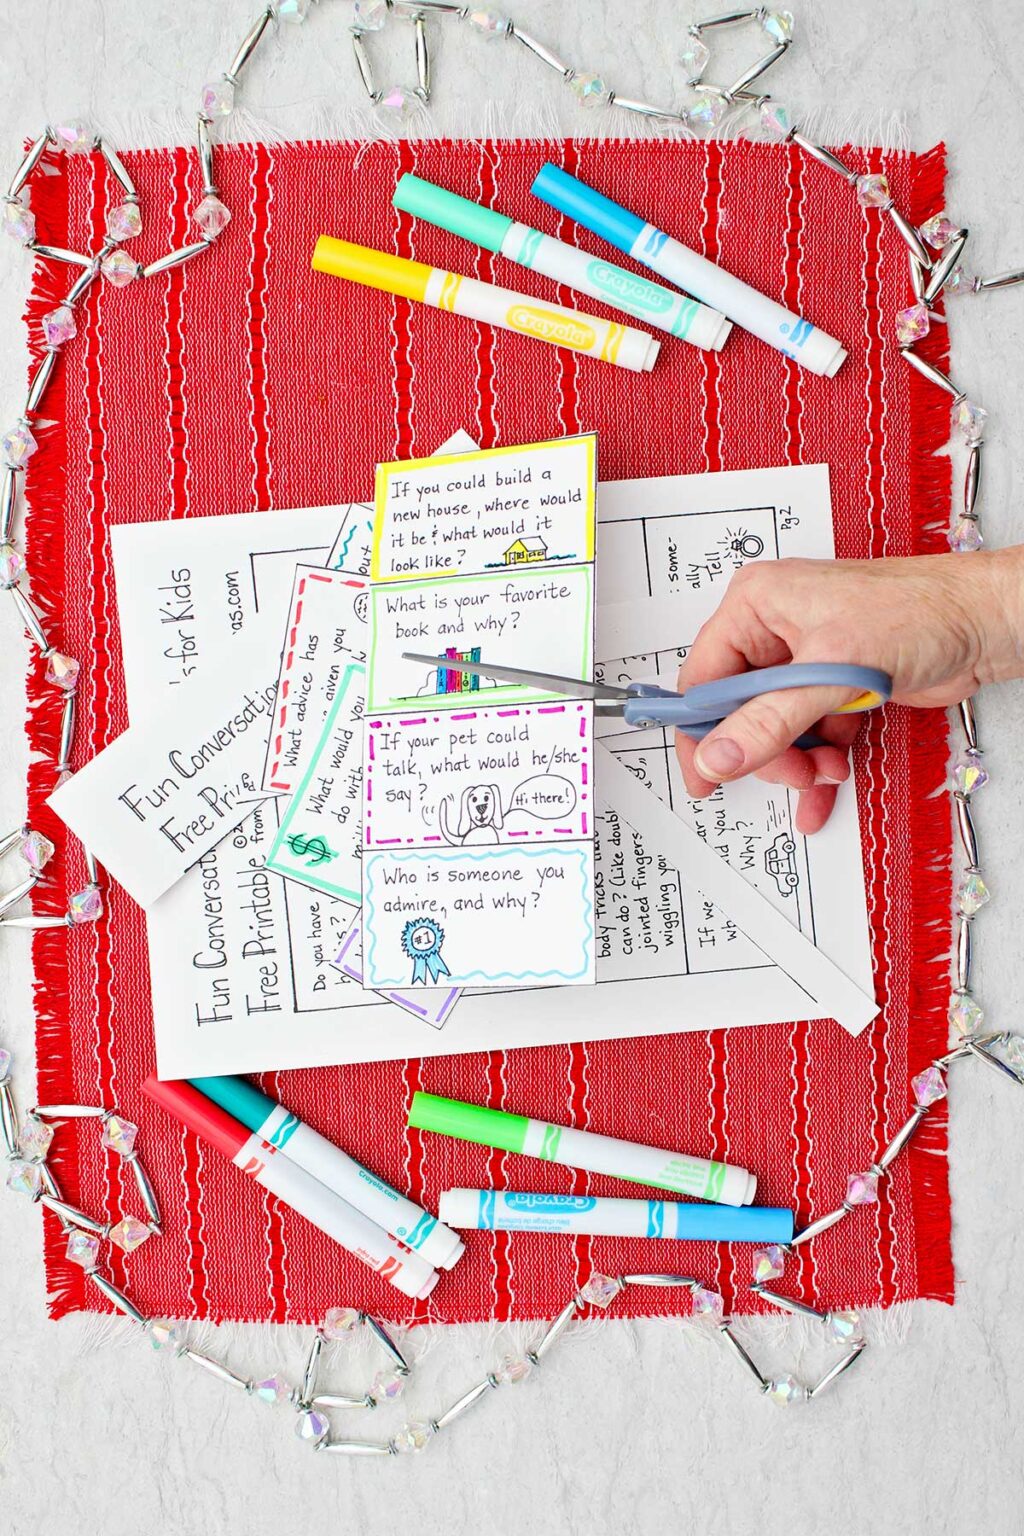 Crayola
Crayola
If you could build a
new house, where would
it be & what would it
look like?
What is your favorite
book and why?
If your pet could
talk, what would he/she
say?
Hi there!
Who is someone you
admire, and why?
#1
What advice has
given you
What would you
do with
$
Fun Conversatio
Free Pri
from
's for Kids
as.com
Fun Conversat
Free Printable
©
Do you have
out
Pg 2
some-
ally
Tell
body tricks
can do? (Like doubl
jointed fingers
wiggling you
If we
ar ri
wh
ld you li
Why?
Crayola.com
Crayola